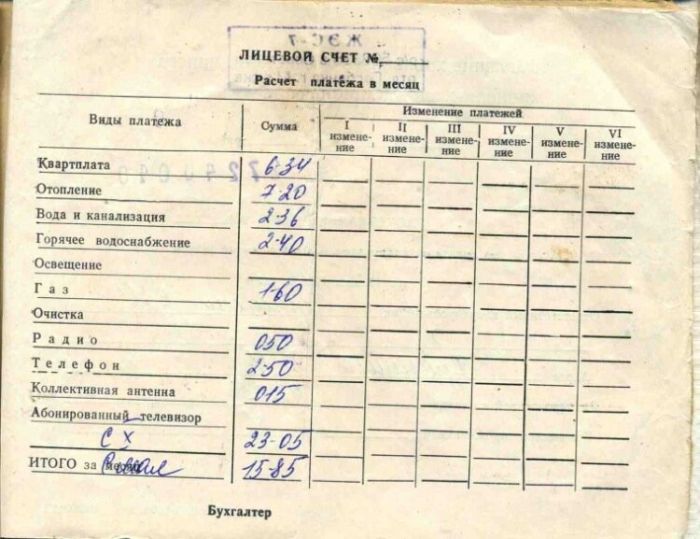 ЛИЦЕВОЙ СЧЕТ №
Расчет платежа в месяц
Виды платежа
Сумма
Изменение платежей
I измене-ние
II измене-ние
III измене-ние
IV измене-ние
V измене-ние
VI измене-ние
Квартплата 6-34
Отопление 7-20
Вода и канализация 2-36
Горячее водоснабжение 2-40
Освещение
Газ 1-60
Очистка
Радио 050
Телефон 2-50
Коллективная антенна 015
Абонированный телевизор
СХ 23-05
ИТОГО за 15-85
Бухгалтер